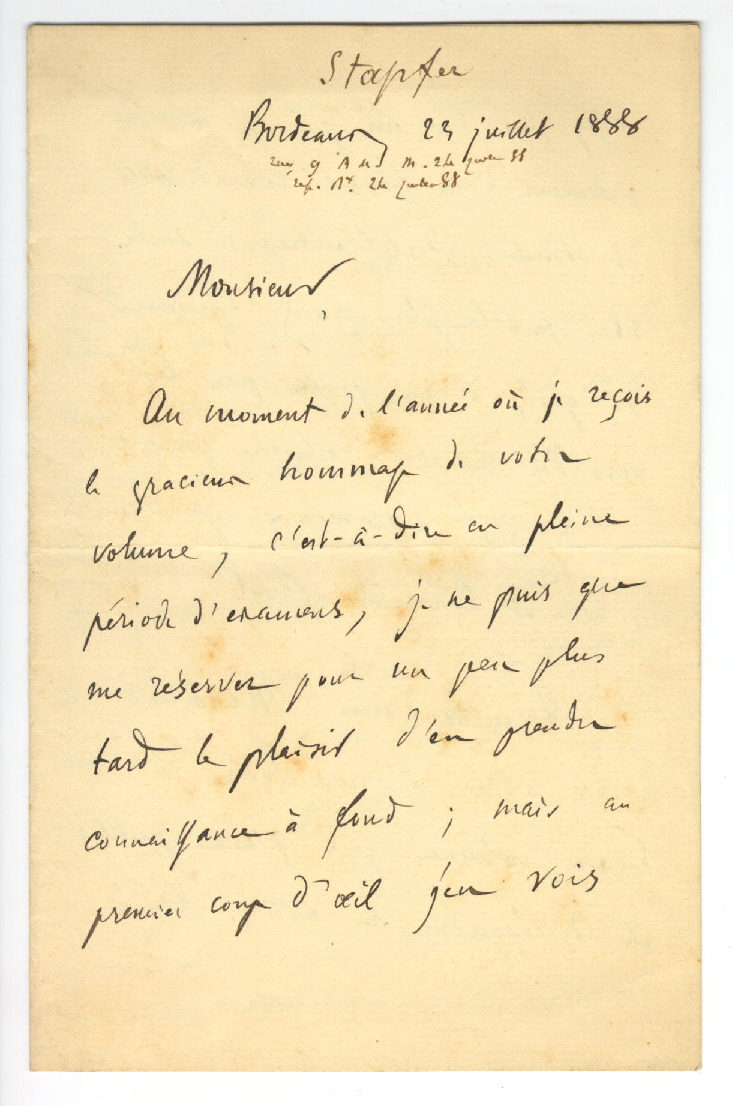 Stapfer
Bordeaux, 23 juillet 1888
24 juillet 88
rép. 24 juillet 88
Monsieur,
Au moment de l'année où je reçois
le gracieux hommage de votre
volume, c'est-à-dire en pleine
période d'examens, je ne puis que
me réserver pour un peu plus
tard le plaisir d'en prendre
connaissance à fond ; mais au
premier coup d'œil j'en vois